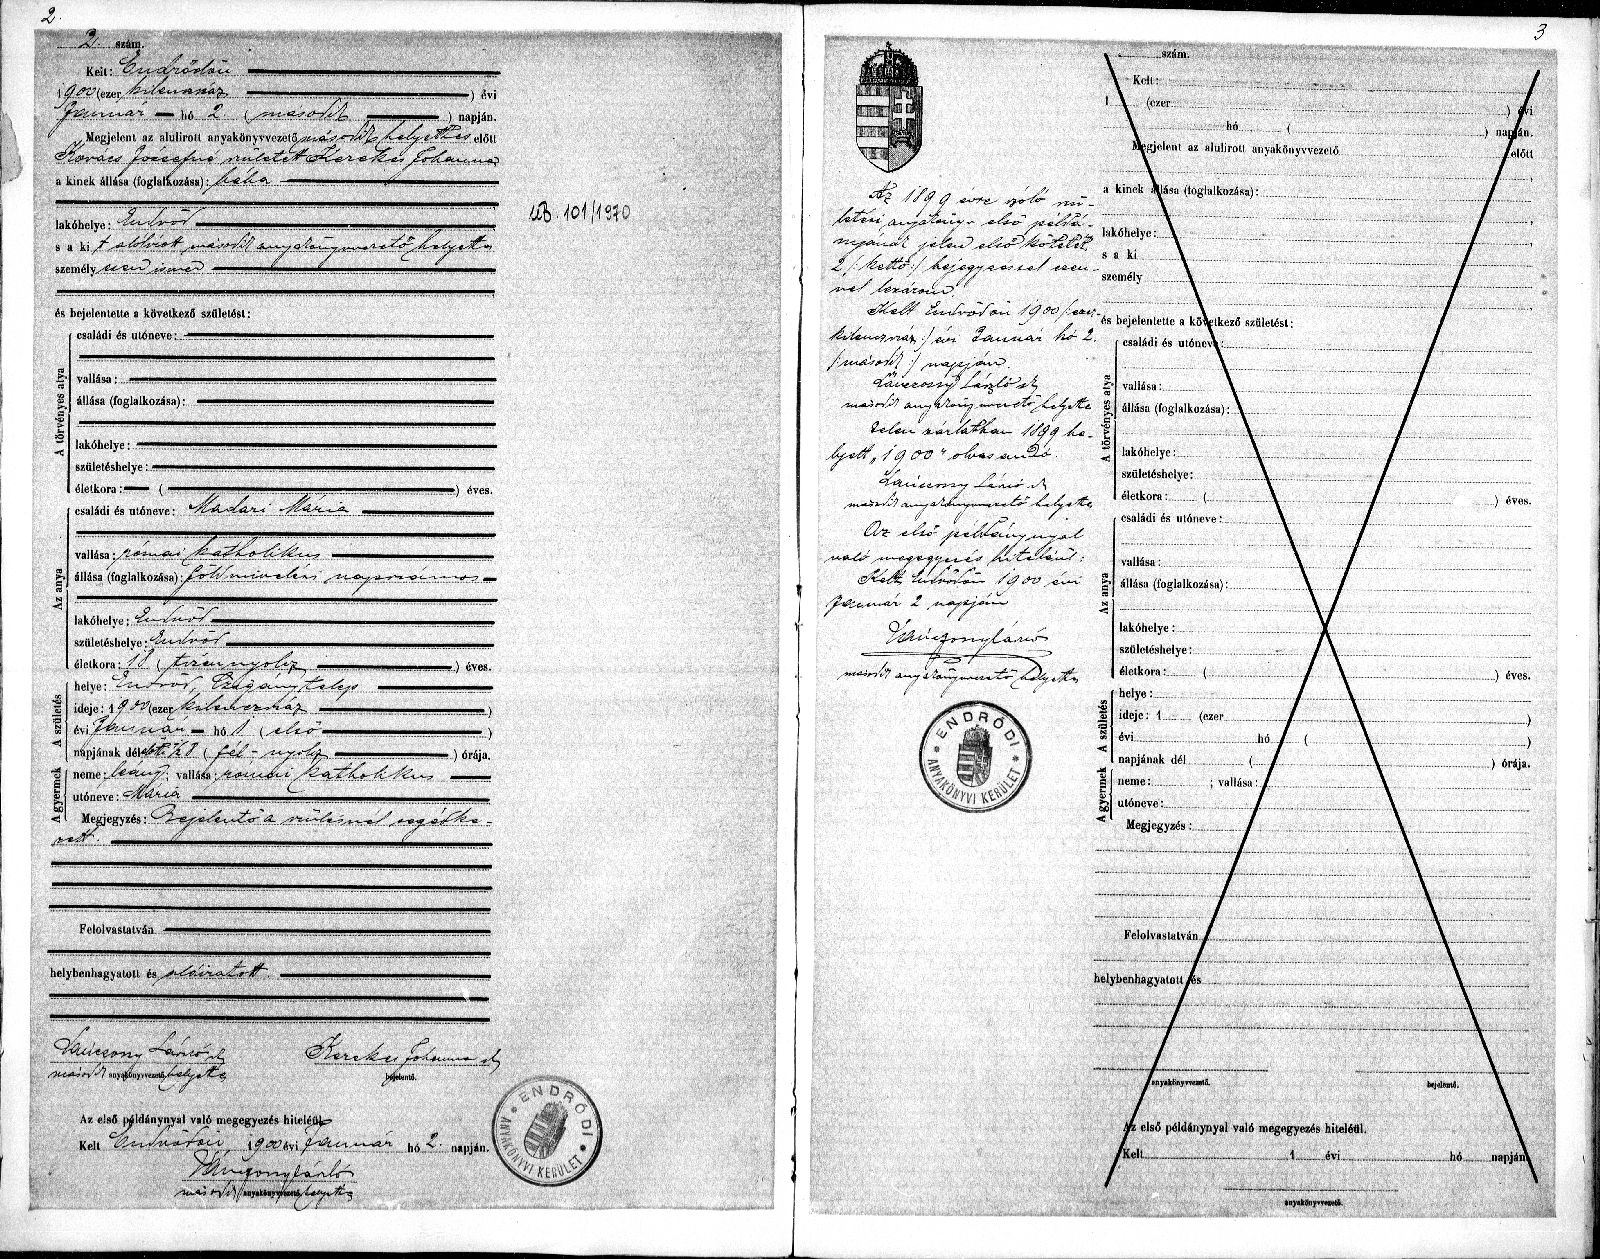 2.
2. szám.
Kelt: Endrődön
1900 (ezer kilencszáz ) évi
Január hó 2. ( második ) napján.
Megjelent az alulirott anyakönyvvezető második helyettes előtt
Kovács Józsefné született Kerekes Johanna
a kinek állása (foglalkozása): bába
lakóhelye: Endrőd
s a ki t alólirott második anyakönyvvezető helyettes
személyesen ismer
és bejelentette a következő születést:
A törvényes atya
családi és utóneve:
vallása:
állása (foglalkozása):
lakóhelye:
születéshelye:
életkora: ( ) éves.
Az anya
családi és utóneve: Madari Mária
vallása: római katholikus
állása (foglalkozása): földmivelési napszámos
lakóhelye: Endrőd
születéshelye: Endrőd
életkora: 18 ( tizennyolcz ) éves.
A születés
helye: Endrőd, Czigánytelep
ideje: 1900 (ezer kilenczszáz )
évi Január hó 1 ( első )
napjának délelőtt 1/2 8 ( fél-nyolcz ) órája.
A gyermek
neme: leány; vallása: római katholikus
utóneve: Mária
Megjegyzés: Bejelentő a szülésnél segédke-
zett.
Felolvastatván
helybenhagyatott és aláiratott.
Vánczony László sk Kerekes Johanna sk
második anyakönyvvezető helyettes bejelentő.
Az első példánynyal való megegyezés hiteléül.
Kelt Endrődön 1900 évi Január hó 2. napján.
második anyakönyvvezető helyettes
ENDRŐDI
ANYAKÖNYVI KERÜLET
UB. 101/1970
3
Az 1899 évre szóló szü-
letési anyakönyv első példá-
nyának jelen első kötetét
2 /: kettő :/ bejegyzéssel ezen-
nel lezárom
Kelt Endrődön 1900 /: ezer-
kilenczszáz :/ évi Január hó 2.
/: második :/ napján
László sk
második anyakönyvvezető helyettes
Jelen zárlatban 1899 he-
lyett "1900" olvasandó.
László sk
második anyakönyvvezető helyettes
Az első példánynyal
való megegyezés hiteléül:
Kelt Endrődön 1900 évi
Január 2 napján
második anyakönyvvezető helyettes
ENDRŐDI
ANYAKÖNYVI KERÜLET
szám.
Kelt:
1 (ezer ) évi
hó ( ) napján.
Megjelent az alulirott anyakönyvvezető előtt
a kinek állása (foglalkozása):
lakóhelye:
s a ki
személy
és bejelentette a következő születést:
A törvényes atya
családi és utóneve:
vallása:
állása (foglalkozása):
lakóhelye:
születéshelye:
életkora: ( ) éves.
Az anya
családi és utóneve:
vallása:
állása (foglalkozása):
lakóhelye:
születéshelye:
életkora: ( ) éves.
A születés
helye:
ideje: 1 (ezer )
évi hó ( )
napjának dél ( ) órája.
A gyermek
neme: ; vallása:
utóneve:
Megjegyzés:
Felolvastatván
helybenhagyatott és
anyakönyvvezető. bejelentő.
Az első példánynyal való megegyezés hiteléül.
Kelt 1 évi hó napján.
anyakönyvvezető.